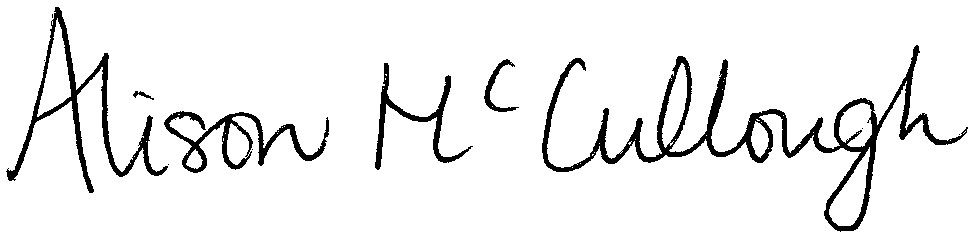 Alison McCullough